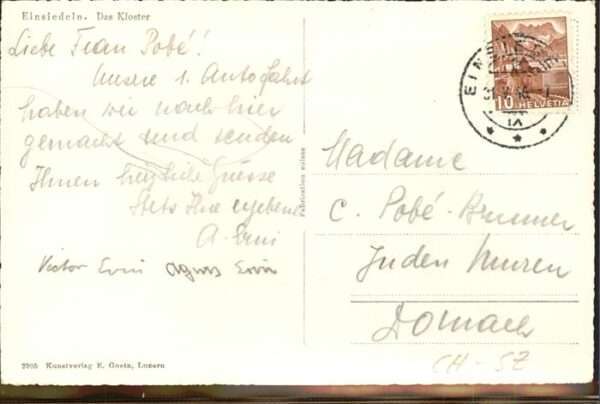 Einsiedeln. Das Kloster
Liebe Frau Pobé!
Unsere 1. Autofahrt
haben wir nach hier
gemacht und senden
Ihnen herzliche Grüsse
Stets Ihre ergebene
A. Erni
Victor Erni Agnes Erni
Kunstverlag E. Goetz, Luzern
Fabrication suisse
10 HELVETIA
Madame
C. Pobé-Brunner
In den Muren
Dornach
CH-SZ